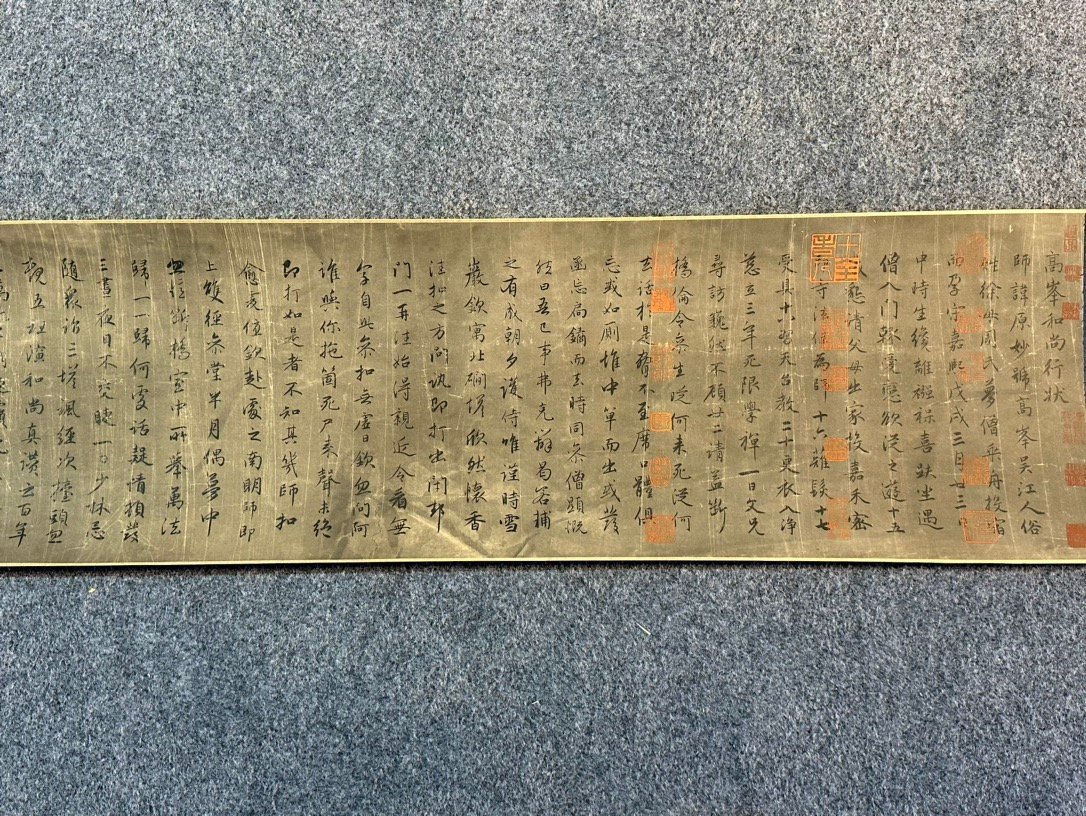 高峯和尚行状
師諱原妙號高峯吳江人俗
姓徐母周氏夢僧乗舟投宿
而孕宋嘉熙戊戌三月廿三日
申時生纔離襁褓喜趺坐遇
僧入門輙愛戀欲從之遊十五
懇請父母出家投嘉禾密
印寺法住為師十六薙髮十七
受具十八習天台教二十更衣入淨
慈立三年死限學禪一日父兄
尋訪巍然不顧廿二請益斷
橋倫令參生從何来死從何
去話於是脅不至席口體俱
忘或如厠惟中單而出或發
凾忘扃鐍而去時同參僧顯慨
然曰吾己事弗克辦曷若輔
之有成朝夕護侍唯謹時雪
巖欽寓北磵塔欣然懷香
往扣之方問訊即打出閉却
門一再往始得親近令看無
字自此參扣無虛日欽忽問阿
誰與你拖箇死屍来聲未絶
即打如是者不知其幾師扣
愈虔值欽赴處之南明師即
上雙徑參堂半月偶夢中
忽憶斷橋室中所舉萬法
歸一一歸何處話疑情頓發
三晝夜目不交睫一日少林忌
隨衆詣三塔諷經次擡頭忽
覩五祖演和尚真讚云百年